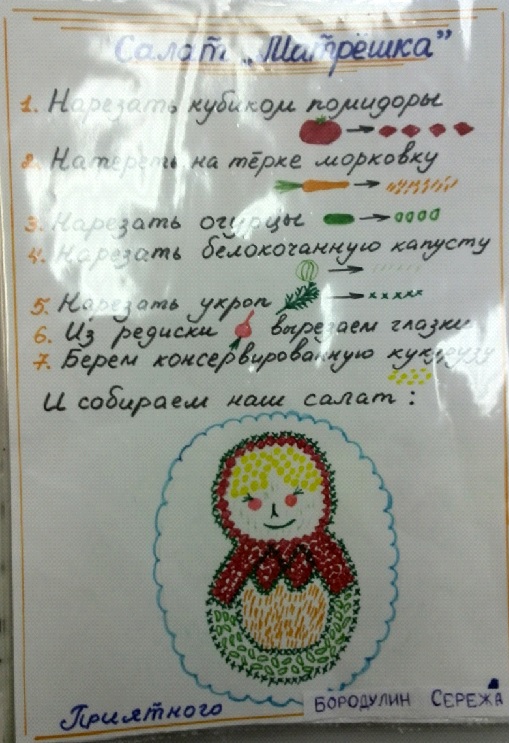 Салат „Матрёшка”
1. Нарезать кубиком помидоры
2. Натереть на тёрке морковку
3. Нарезать огурцы
4. Нарезать белокочанную капусту
5. Нарезать укроп
6. Из редиски вырезаем глазки
7. Берем консервированную кукурузу
И собираем наш салат :
Приятного
БОРОДУЛИН СЕРЕЖА